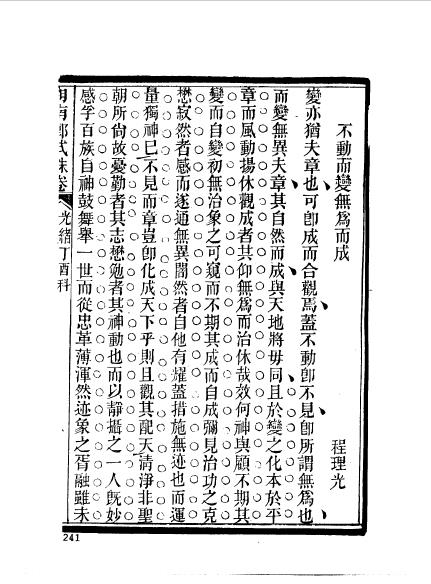 不動而變無爲而成
程理光
變亦猶夫章也可卽成而合觀焉蓋不動卽不見卽所謂無爲也
而變無異夫章其自然而成與天地將毋同且於變之化本於平
章而風動揚休觀成者其仰無爲而治休哉效何神與顧不期其
變而自變初無治象之可窺而不期其成而自成彌見治功之克
懋寂然者感而遂通無異闇然者自他有耀蓋措施無迹也而運
量獨神巳不見而章豈卽化成天下乎則且觀其配天淸淨非聖
朝所尙故憂勤者其志懋勉者其神動也而以靜攝之一人旣妙
感孚百族自神鼓舞舉一世而從忠革薄渾然迹象之胥融雖未
卷 光緒丁酉科
241